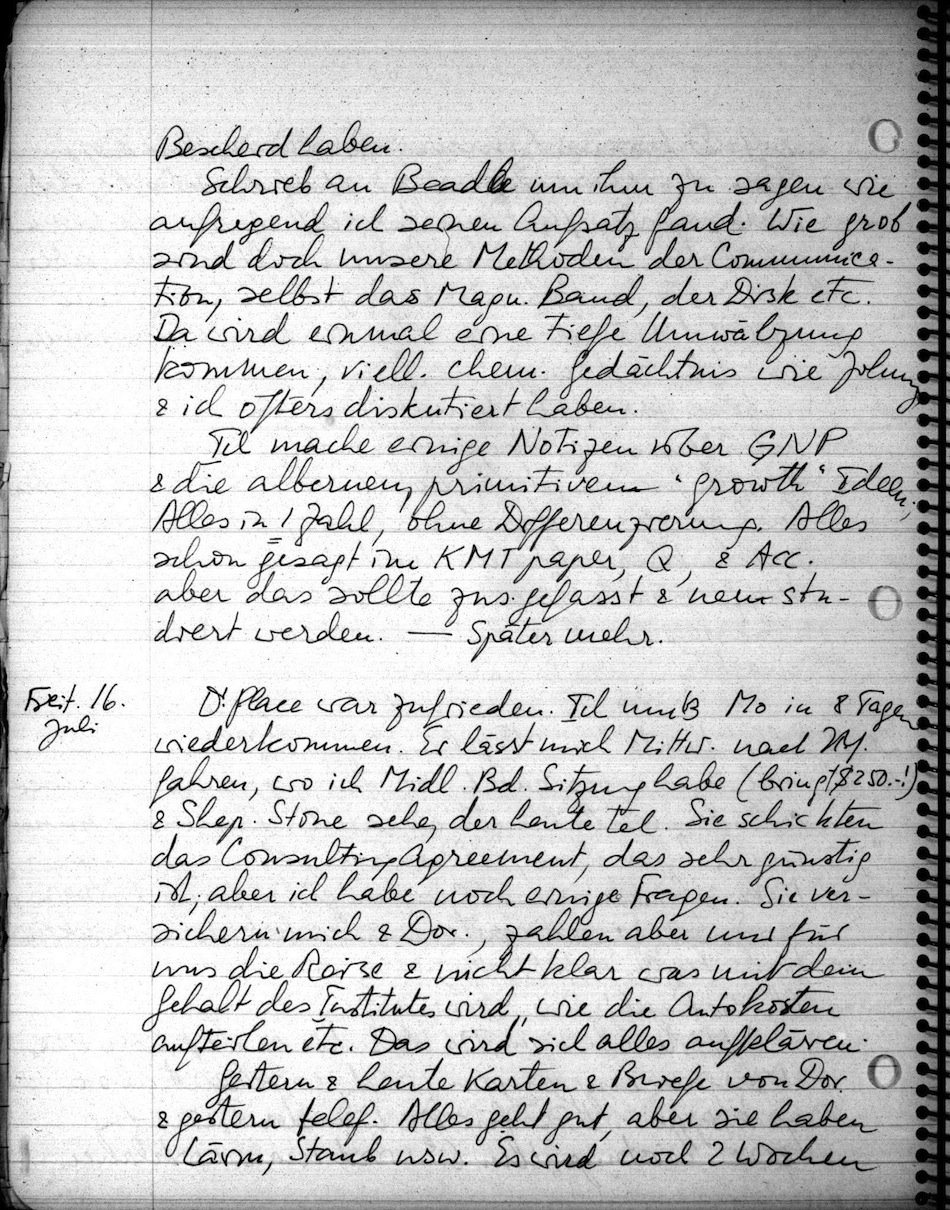 Bescheid haben.
Schrieb an Beadle um ihm zu sagen wie
aufregend ich seinen Aufsatz fand. Wie grob
sind doch unsere Methoden der Communica-
tion, selbst das Magn. Band, der Disk etc.
Da wird einmal eine tiefe Umwälzung
kommen, viell. chem. Gedächtnis wie Johnny
& ich öfters diskutiert haben.
Ich mache einige Notizen über GNP
& die albernen, primitiven "growth" Ideen,
Alles in 1 Zahl, ohne Differenzierung. Alles
schon gesagt im KMT paper, Q, & Acc.
aber das sollte zus.gefasst & neu stu-
diert werden. — Später mehr.
Freit. 16.
Juli
Dr. Place war zufrieden. Ich muß Mo in 8 Tagen
wiederkommen. Er lässt mich Mittw. nach NY.
fahren, wo ich Midl. Bd. Sitzung habe (bringt $250.-!)
& Shep. Stone sehe, der heute tel. Sie schickten
das Consulting Agreement, das sehr günstig
ist, aber ich habe noch einige Fragen. Sie ver-
sichern mich & Dor., zahlen aber nur für
uns die Reise & nicht klar was mit dem
Gehalt des Institutes wird, wie die Autokosten
aufteilen etc. Das wird sich alles aufklären.
Gestern & heute Karten & Briefe von Dor.
& gestern telef. Alles geht gut, aber sie haben
Lärm, Staub usw. Es wird noch 2 Wochen